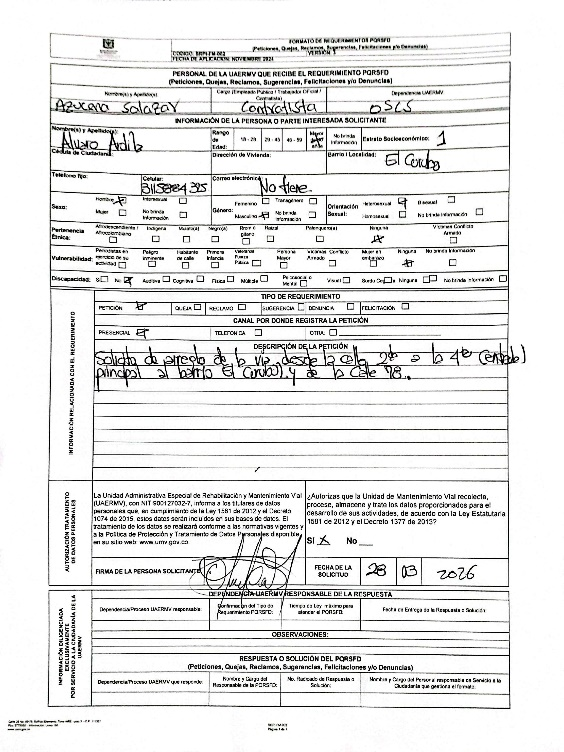 FORMATO DE REQUERIMIENTOS PQRSFD
(Peticiones, Quejas, Reclamos, Sugerencias, Felicitaciones y/o Denuncias)
CÓDIGO: SRPI-FM-002
VERSIÓN: 3
FECHA DE APLICACIÓN: NOVIEMBRE 2024
PERSONAL DE LA UAERMV QUE RECIBE EL REQUERIMIENTO PQRSFD
(Peticiones, Quejas, Reclamos, Sugerencias, Felicitaciones y/o Denuncias)
Nombre(s) y Apellido(s):
Cargo (Empleado Público / Trabajador Oficial / Contratista)
Dependencia UAERMV:
Azucena Salazar
Contratista
OSCS
INFORMACIÓN DE LA PERSONA O PARTE INTERESADA SOLICITANTE
Nombre(s) y Apellido(s):
Alvaro Ardila
Rango de Edad:
18 - 28
29 - 45
46 - 59
No brinda Información
Estrato Socioeconómico: 1
Cédula de Ciudadanía:
Dirección de Vivienda:
Barrio / Localidad:
Teléfono fijo:
Celular:
Correo electrónico:
No tiene.
Sexo:
Hombre
Intersexual
Mujer
No brinda Información
Género:
Femenino
Transgénero
Masculino
No brinda Información
Orientación Sexual:
Heterosexual
Bisexual
Homosexual
No brinda Información
Pertenencia Étnica:
Afrodescendiente / Afrocolombiano
Indígena
Mulato(a)
Negro(a)
Rrom o gitano
Raizal
Palenquero(a)
Ninguna
Víctimas Conflicto Armado
Vulnerabilidad:
Periodistas en ejercicio de su actividad
Peligro inminente
Habitante de calle
Primera Infancia
Veteranos Fuerza Pública
Persona Mayor
Víctimas Conflicto Armado
Mujer en embarazo
Ninguna
No brinda Información
Discapacidad:
Si
No
Auditiva
Cognitiva
Física
Múltiple
Psicosocial o Mental
Visual
Sordo Ceguera
Ninguna
No brinda Información
INFORMACIÓN RELACIONADA CON EL REQUERIMIENTO
TIPO DE REQUERIMIENTO
PETICIÓN
QUEJA
RECLAMO
SUGERENCIA
DENUNCIA
FELICITACIÓN
CANAL POR DONDE REGISTRA LA PETICIÓN
PRESENCIAL
TELEFÓNICA
OTRA:
DESCRIPCIÓN DE LA PETICIÓN
Solicita de arreglo de la via desde la calle
principal al barrio El y de la Calle 98.
AUTORIZACIÓN TRATAMIENTO DE DATOS PERSONALES
La Unidad Administrativa Especial de Rehabilitación y Mantenimiento Vial
(UAERMV), con NIT 900127032-7, informa a los titulares de datos
personales que, en cumplimiento de la Ley 1581 de 2012 y el Decreto
1074 de 2015, estos datos serán incluidos en sus bases de datos. El
tratamiento de los datos se realizará conforme a las normativas vigentes y
a la Política de Protección y Tratamiento de Datos Personales disponible
en su sitio web: www.umv.gov.co.
¿Autorizas que la Unidad de Mantenimiento Vial recolecte,
procese, almacene y trate los datos proporcionados para el
desarrollo de sus actividades, de acuerdo con la Ley Estatutaria
1581 de 2012 y el Decreto 1377 de 2013?
SI X No
FIRMA DE LA PERSONA SOLICITANTE
FECHA DE LA SOLICITUD
28
03
2026
INFORMACIÓN DILIGENCIADA EXCLUSIVAMENTE POR SERVICIO A LA CIUDADANÍA DE LA UAERMV
DEPENDENCIA UAERMV RESPONSABLE DE LA RESPUESTA
Dependencia/Proceso UAERMV responsable:
Confirmación del Tipo de Requerimiento PQRSFD:
Tiempo de Ley máximo para atender el PQRSFD:
Fecha de Entrega de la Respuesta o Solución:
OBSERVACIONES:
RESPUESTA O SOLUCIÓN DEL PQRSFD
(Peticiones, Quejas, Reclamos, Sugerencias, Felicitaciones y/o Denuncias)
Dependencia/Proceso UAERMV que responde:
Nombre y Cargo del Responsable de la PQRSFD:
No. Radicado de Respuesta o Solución:
Nombre y Cargo del Personal responsable de Servicio a la Ciudadanía que gestiona el formato.